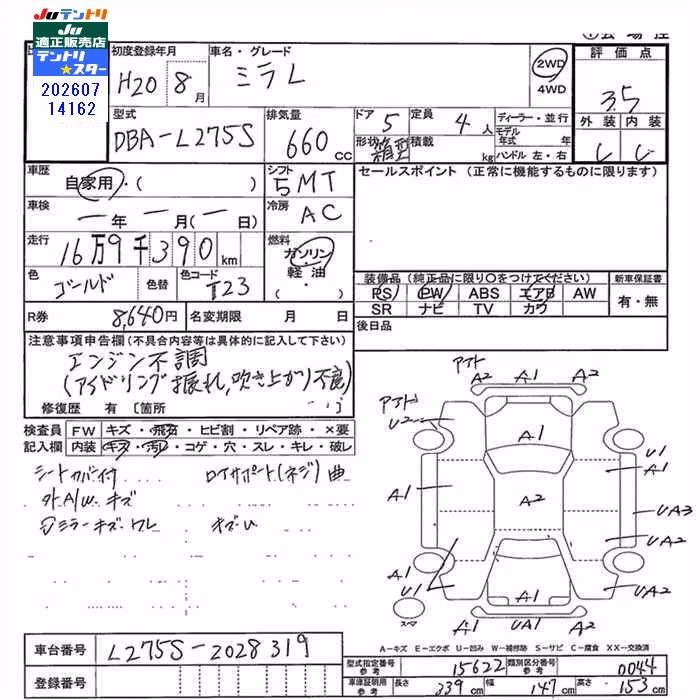 Juテントリ
Ju
適正販売店
テントリ
★スター
202607
14162
初度登録年月
H20 8月
車名・グレード
ミラL
2WD
4WD
評価点
3.5
外装 内装
型式
DBA-L275S
排気量
660cc
ドア 5
定員 4人
形状 箱型
積載 kg
ディーラー・並行
モデル年式 年
ハンドル 左・右
車歴
自家用・( )
シフト
5MT
セールスポイント (正常に機能するものに限ります)
車検
ー年ー月(ー日)
冷房
AC
走行
16万9千390km
燃料
ガソリン
軽油
( ・ )
色
ゴールド
色替
色コード
T23
装備品(純正品に限り○をつけてください)
新車保証書
PS PW ABS エアB AW
SR ナビ TV カワ
有・無
R券 8,640円
名変期限 月 日
後日品
注意事項申告欄(不具合内容等は具体的に記入して下さい)
エンジン不調
(アイドリング振れ,吹き上がり不良)
修復歴 有 [箇所
検査員 FW キズ・飛石・ヒビ割・リペア跡・×要
記入欄 内装 キズ・汚レ・コゲ・穴・スレ・キレ・破レ
シートカバー付
外A/W キズ
ミラーキズ・ワレ
キズU
曲
アト
A2 A1 A2
アト
U2
A1
U1
A1
A1
A2
UA3
UA2
A1
U1
UA2
A1
スペア
A1 UA1 A2
A-キズ E-エクボ U-凹み W-補修跡 S-サビ C-腐食 XX-交換済
車台番号 L275S-2028319
型式指定番号 参考 15622
類別区分番号 参考 0044
登録番号
車庫証明用 参考 長さ 339cm 幅 147cm 高さ 153cm